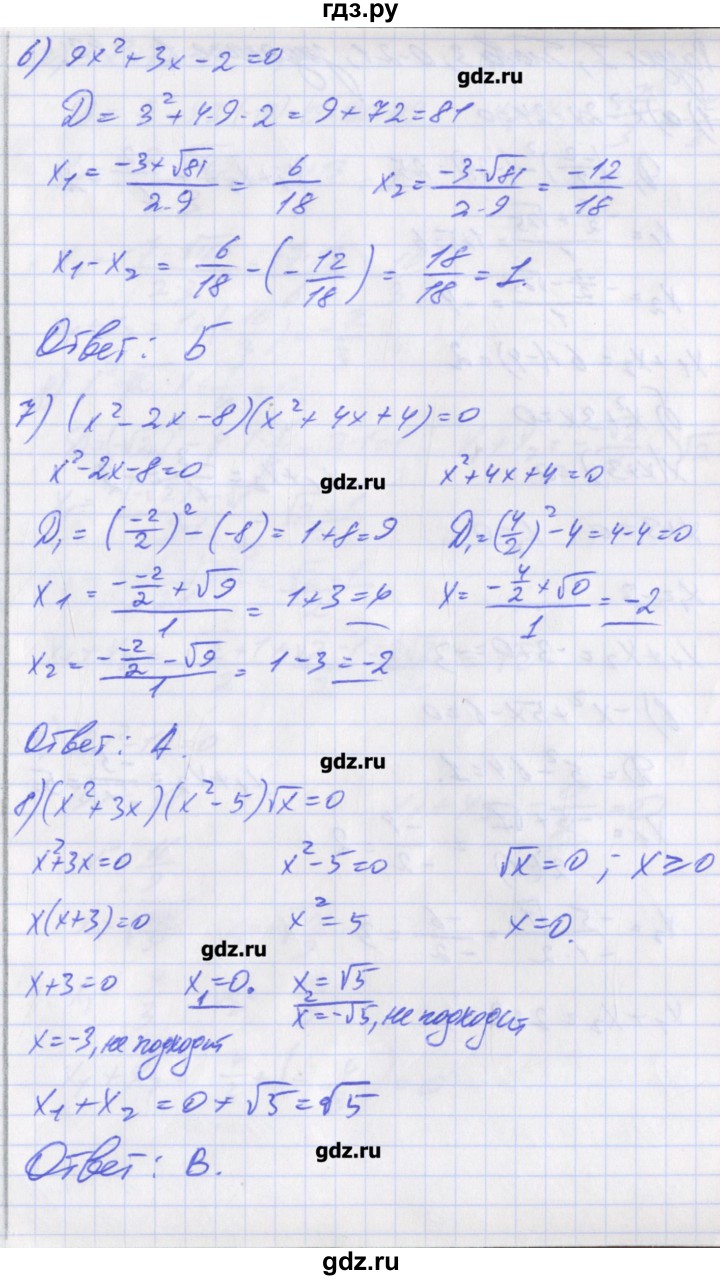 гдз.ру
6) 9x² + 3x - 2 = 0
gdz.ru
D = 3² + 4·9·2 = 9 + 72 = 81
x₁ = (-3+√81)/(2·9) = 6/18 x₂ = (-3-√81)/(2·9) = -12/18
x₁ - x₂ = 6/18 - (-12/18) = 18/18 = 1.
Ответ: Б
7) (x² - 2x - 8)(x² + 4x + 4) = 0
x² - 2x - 8 = 0 gdz.ru x² + 4x + 4 = 0
D₁ = (-2/2)² - (-8) = 1 + 8 = 9 D₁ = (4/2)² - 4 = 4 - 4 = 0
x₁ = (- -2/2 + √9)/1 = 1 + 3 = 4 x = (- 4/2 + √0)/1 = -2
x₂ = (- -2/2 - √9)/1 = 1 - 3 = -2
Ответ: А.
gdz.ru
8) (x² + 3x)(x² - 5)√x = 0
x² + 3x = 0 x² - 5 = 0 √x = 0 ; x ⩾ 0
x(x + 3) = 0 x² = 5 x = 0.
gdz.ru
x + 3 = 0 x₁ = 0. x₂ = √5
x = -3, не подходит x = -√5, не подходит
x₁ + x₂ = 0 + √5 = √5
Ответ: В.
gdz.ru
gdz.ru